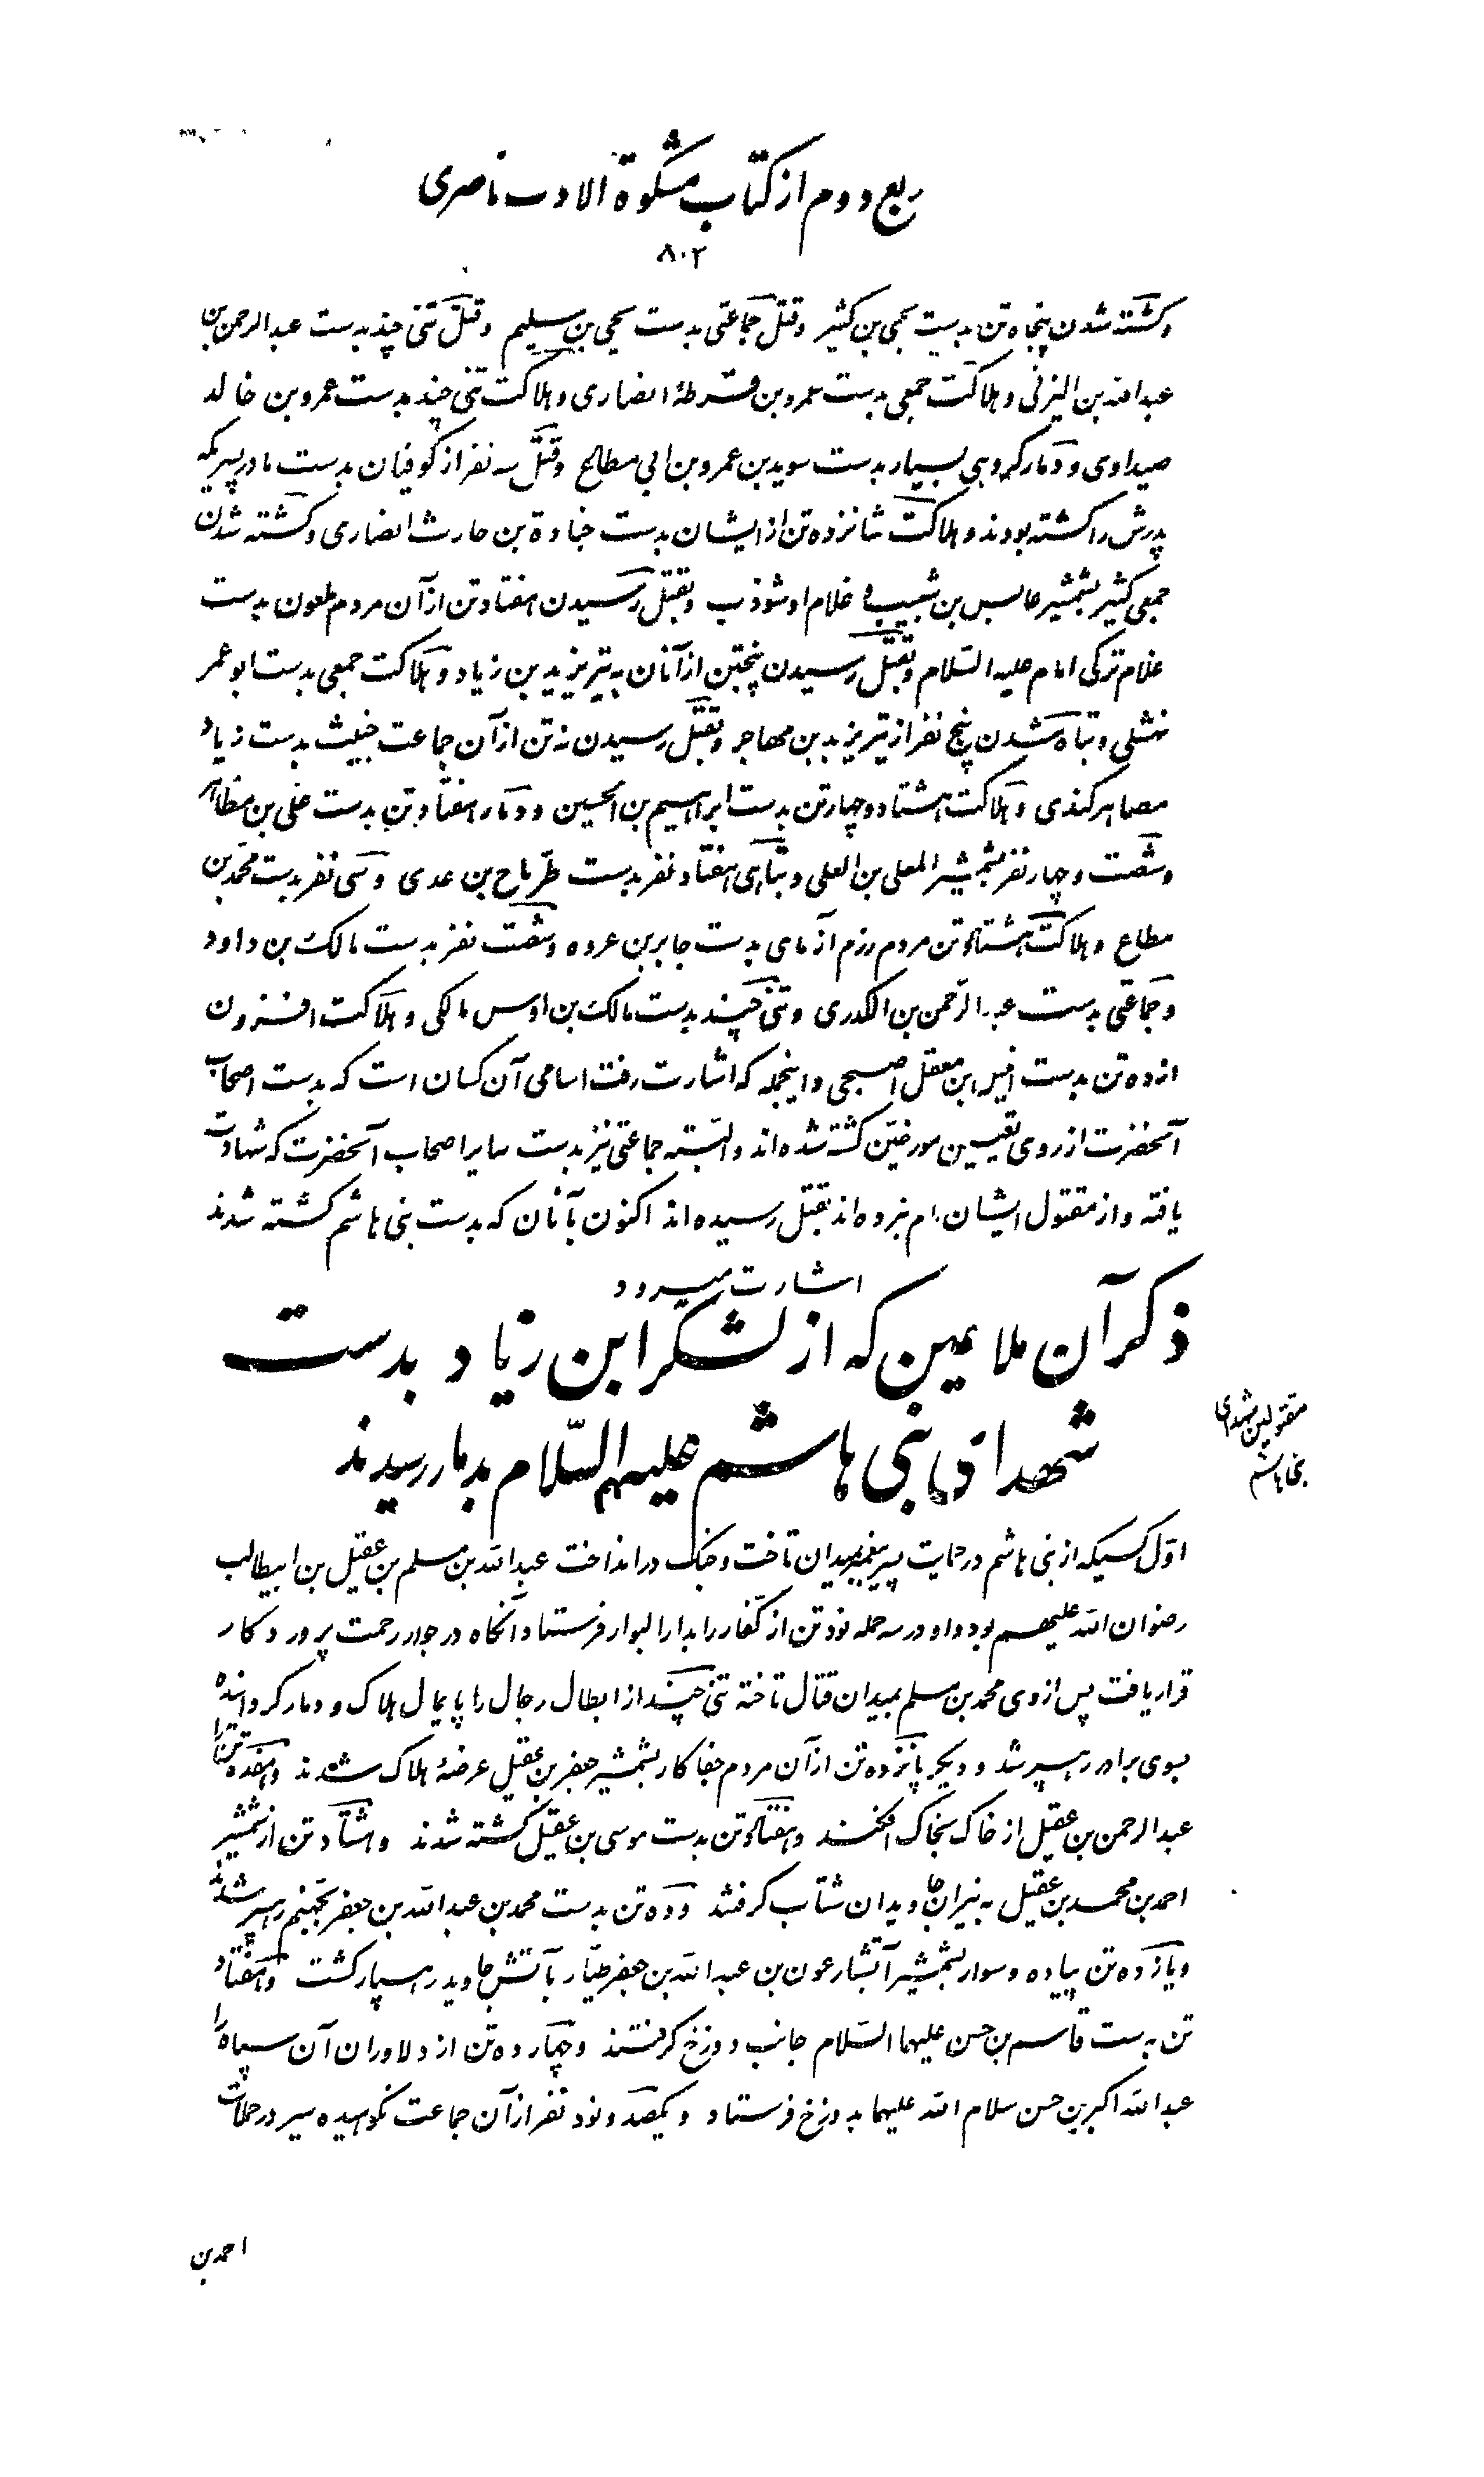 ربع دوم از کتاب مشکوة الادب ناصری
۸۰۲
وکشته شدن پنجاه تن بدست یحیی بن کثیر وقتل جماعتی بدست یحیی بن سلیم وقتل تنی چند بدست عبدالرحمن بن
عبدالله بن الیزنی وهلاکت جمعی بدست عمرو بن قرظهٔ انصاری وهلاکت تنی چند بدست عمرو بن خالد
صیداوی ودمار گروهی بسیار بدست سوید بن عمرو بن ابی مطالع وقتل سه نفر از کوفیان بدست مادر پسریکه
پدرش را کشته بودند وهلاکت شانزده تن از ایشان بدست جنادة بن حارث انصاری وکشته شدن
جمعی کثیر بشمشیر عابس بن شبیب غلام او شوذب وبقتل رسیدن هفتاد تن از آن مردم ملعون بدست
غلام ترکی امام علیه السلام وبقتل رسیدن پنجتن از آنان به تیر یزید بن زیاد وهلاکت جمعی بدست ابو عمر
نهشلی وتباه شدن پنج نفر از تیر یزید بن مهاجر وبقتل رسیدن نه تن از آن جماعت خبیث بدست زیاد
مصاهر کندی وهلاکت هشتاد وچهار تن بدست ابراهیم بن الحسین ودمار هفتاد تن بدست علی بن مظاهر
وشصت وچهار نفر بشمشیر المعلی بن العلی وتباهی هفتاد نفر بدست طرماح بن عدی وسی نفر بدست محمد بن
مطاع وهلاکت هشتاد تن مردم رزم آزمای بدست جابر بن عروه وشصت نفر بدست مالک بن داود
وجماعتی بدست عبدالرحمن بن الکدری وتنی چند بدست مالک بن اوس مالکی وهلاکت افزون
از ده تن بدست انیس ابن معقل اصبحی واینجمله که اشارت رفت اسامی آن کسان است که بدست اصحاب
آنحضرت از روی تعیین مورخین کشته شده اند والبته جماعتی نیز بدست سایر اصحاب آنحضرت که شهادت
یافته واز مقتول ایشان نام نبرده اند بقتل رسیده اند اکنون بآنان که بدست بنی هاشم کشته شدند
اشارت میرود
ذکر آن ملاعین که از لشکر ابن زیاد بدست
شهدای بنی هاشم علیهم السّلام بدمار رسیدند
مقتولین شهدای
بنی هاشم
اوّل کسیکه از بنی هاشم در حمایت پسر پیغمبر بمیدان تاخت وجنک در انداخت عبدالله بن مسلم بن عقیل بن ابیطالب
رضوان الله علیهم بود واو در سه حمله نود تن از کفار را بدار البوار فرستاد وآنگاه در جوار رحمت پروردگار
قرار یافت پس از وی محمد بن مسلم بمیدان قتال تاخته تنی چند از ابطال رجال را پایمال هلاک ودمار گردانیده
بسوی برادر رهسپر شد ودیگر پانزده تن از آن مردم جفا کار بشمشیر جعفر بن عقیل عرضهٔ هلاک شدند وهفده تن را
عبدالرحمن بن عقیل از خاک بخاک افکند وهفتاد تن بدست موسی بن عقیل کشته شدند وهشتاد تن از شمشیر
احمد بن محمد بن عقیل به نیران جاویدان شتاب گرفتند وده تن بدست محمد بن عبدالله بن جعفر بجهنم رهسپر شدند
ویازده تن پیاده وسوار بشمشیر آتشبار عون بن عبدالله بن جعفر طیّار بآتش جاوید رهسپار گشت وهفتاد
تن بدست قاسم بن حسن علیهما السّلام جانب دوزخ گرفتند وچهارده تن از دلاوران آن سپاه را
عبدالله اکبر بن حسن سلام الله علیهما بدوزخ فرستاد ویکصد ونود نفر از آن جماعت نکوهیده سیر در حملات
احمد بن